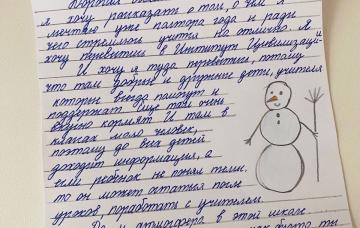 я хочу рассказать о том, о чём я
мечтаю уже полтора года и ради
чего стремлюсь учится на отлично. Я
хочу перевестись в Институт Цивилизаций
И хочу я туда перевестись, потому
что там добрые и дружные дети, учителя
которые всегда помогут и
поддержат. Еще там очень
вкусно кормят. И там в
классах мало человек,
поэтому до всех детей
доходит информация, а
если ребёнок не понял тему,
то он может остаться после
уроков, поработать с учителем.
атмосфера в этой школе
как будто ты